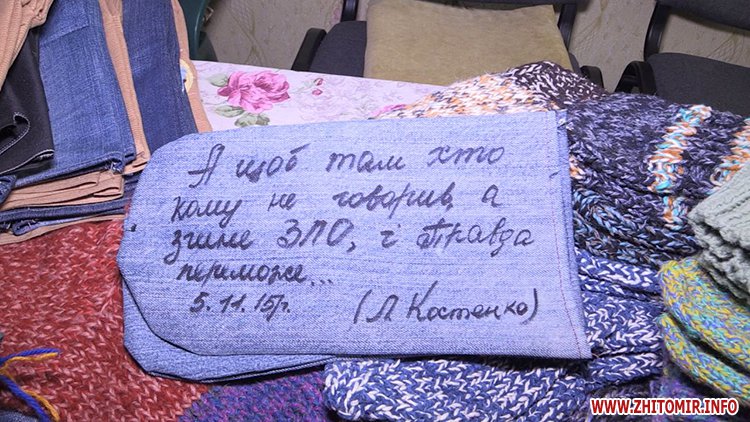 А щоб там хто
кому не говорив, а
згине ЗЛО, і правда
переможе...
5.11.15р. (Л Костенко)
WWW.ZHITOMIR.INFO